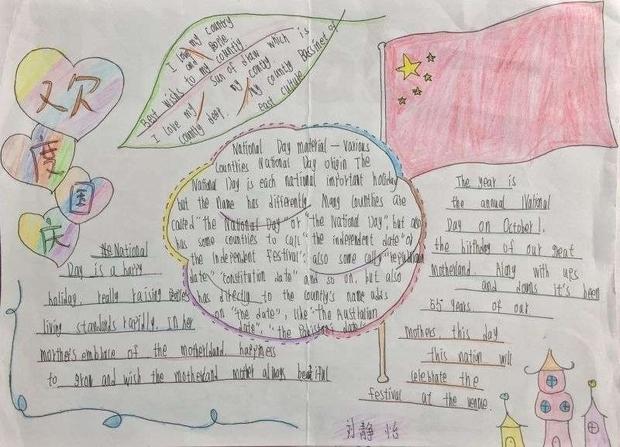 欢
庆
国
庆
I love my country
and people
Best wishes to my country
sun of draw which is
I love my country
my country Bassinet of
country deep.
east culture
National Day material - Various
Countries National Day origin The
National Day is each national important holiday
but the name has differently. Many countries are
called "the National Day" or "the National Day", but also
has some countries to call "the independent date" or
"the independent Festival": also some call "republican
date" "constitution date" and so on, but also
has directly to the country's name adds
on "the date", like "the Australian
date", "the Pakistani date"
The year is
the annual National
Day on October 1.
the birthday of our great
motherland. Along with ups
and downs it's been
55 years of our
mothers this day
this nation will
celebrate the
festival at the venue.
National
Day is a happy
holiday, really raising
living standards rapidly. In her
mother's embrace of the motherland happiness
to grow and wish the motherland mother always beautiful
刘静怡